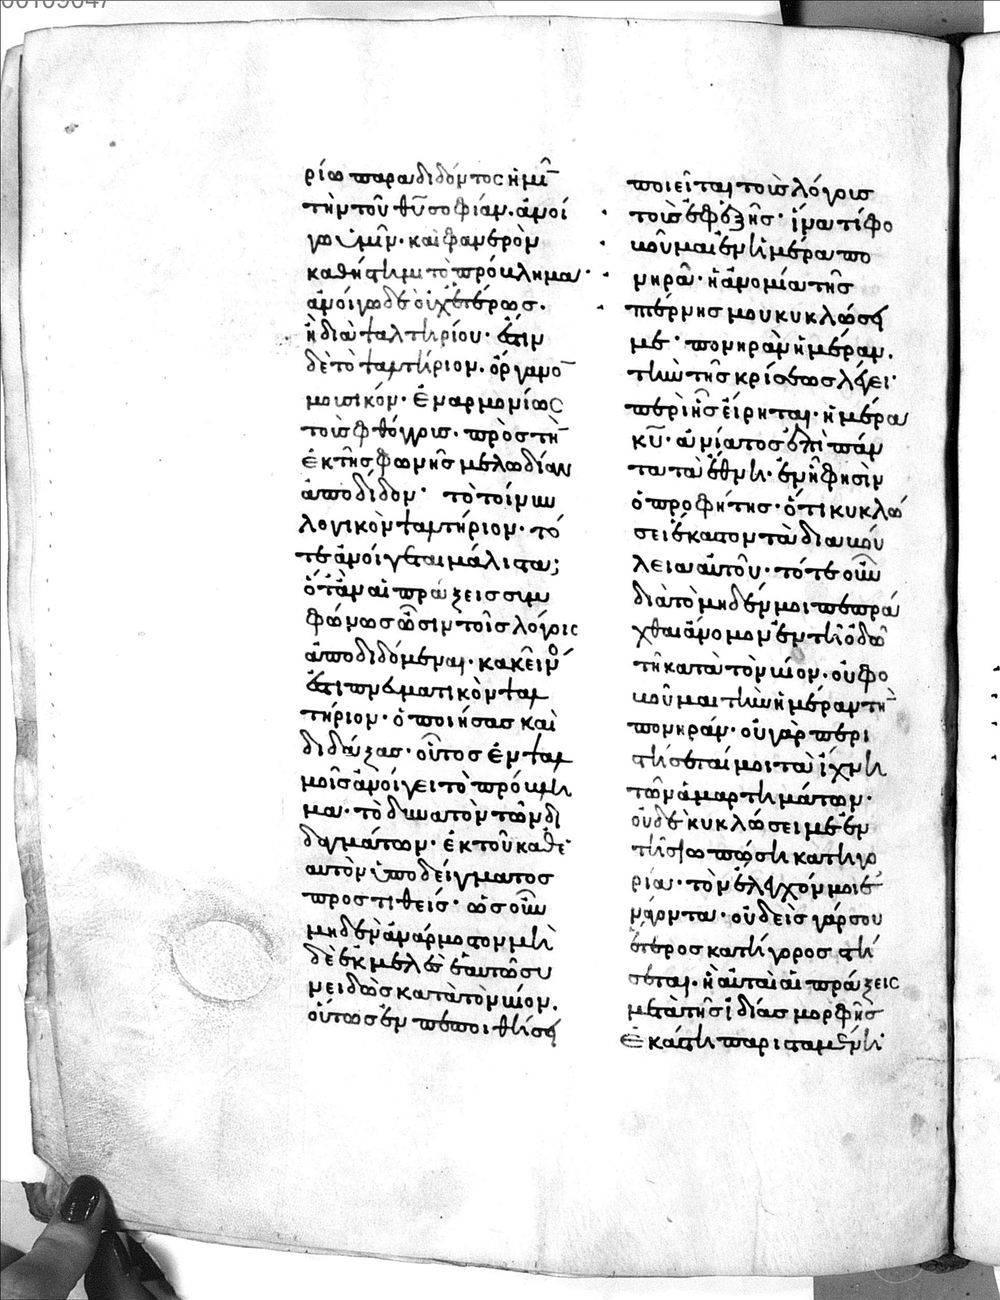 ρίω παραδιδόντος ἡμῖ
τὴν τοῦ θῦ σοφίαν. ἀνοί
γω ὑμῖν· καὶ φανερὸν
καθίστημι τὸ πρόβλημα·
ἀνοίγω δὲ οὐχ ἑτέρως·
ἢ διὰ ψαλτηρίου· ἔστιν
δὲ τὸ ψαλτήριον. ὄργανο
μουσικόν· ἐναρμονίως
τοῖς φθόγγοις· πρὸς τὴ
ἐκ τῆς φωνῆς μελωδίαν
ἀποδίδον· τὸ τοίνυν
λογικὸν ψαλτήριον· τό
τε ἀνοίγεται μάλιστα;
ὅταν αἱ πράξεις συμ
φώνως ὦσιν τοῖς λόγοις
ἀποδιδόμεναι· κἀκεῖνό
ἐστι πνευματικὸν ψαλ
τήριον· ὁ ποιήσας καὶ
διδάξας· οὗτος ἐν ψαλ
μοῖς ἀνοίγει τὸ πρόβλη
μα· τὸ δυνατὸν τῶν δι
δαγμάτων· ἐκ τοῦ καθ' ἑ
αυτὸν ὑποδείγματος
προστιθείς· ὡς οὖν
μηδὲν ἀνάρμοστον μὴ
δὲ ἐκμελὲς ἑαυτῶ συ
νειδὼς κατὰ τὸν βίον.
οὕτως ἐν πεποιθήσει
ποιεῖται τοῖς λόγοις
τοῖς ἐφεξῆς· ἵνα τί φο
βοῦμαι ἐν ἡμέρα πο
νηρᾶ· ἡ ἀνομία τῆς
πτέρνης μου κυκλώσει
με· πονηρὰν ἡμέραν.
τὴν τῆς κρίσεως λέγει·
περὶ ἧς εἴρηται· ἡμέρα
κῦ· ἀνίατος ἐπὶ πάν
τα τὰ ἔθνη· ἐν ᾗ φησὶν
ὁ προφήτης· ὅτι κυκλώ
σει ἕκαστον τὰ διαβού
λεια αὐτοῦ· τότε οὖν
διὰ τὸ μηδέν μοι πεπρά
χθαι ἄνομον ἐν τῆ ὁδῶ
τῆ κατὰ τὸν βίον. οὐ φο
βοῦμαι τὴν ἡμέραν τὴ
πονηράν· οὐ γὰρ περι
στήσεταί μοι τὰ ἴχνη
τῶν ἁμαρτημάτων·
οὐδὲ κυκλώσει με ἐν
τῆ σιωπώση κατηγο
ρία· τὸν ἔλεγχόν μοι ἐ
νάγοντα· οὐδεὶς γάρ σου
ἕτερος κατήγορος στή
σεται. ἢ αὐταὶ αἱ πράξεις
μετὰ τῆς ἰδίας μορφῆς
ἑκάστη παρισταμένη·